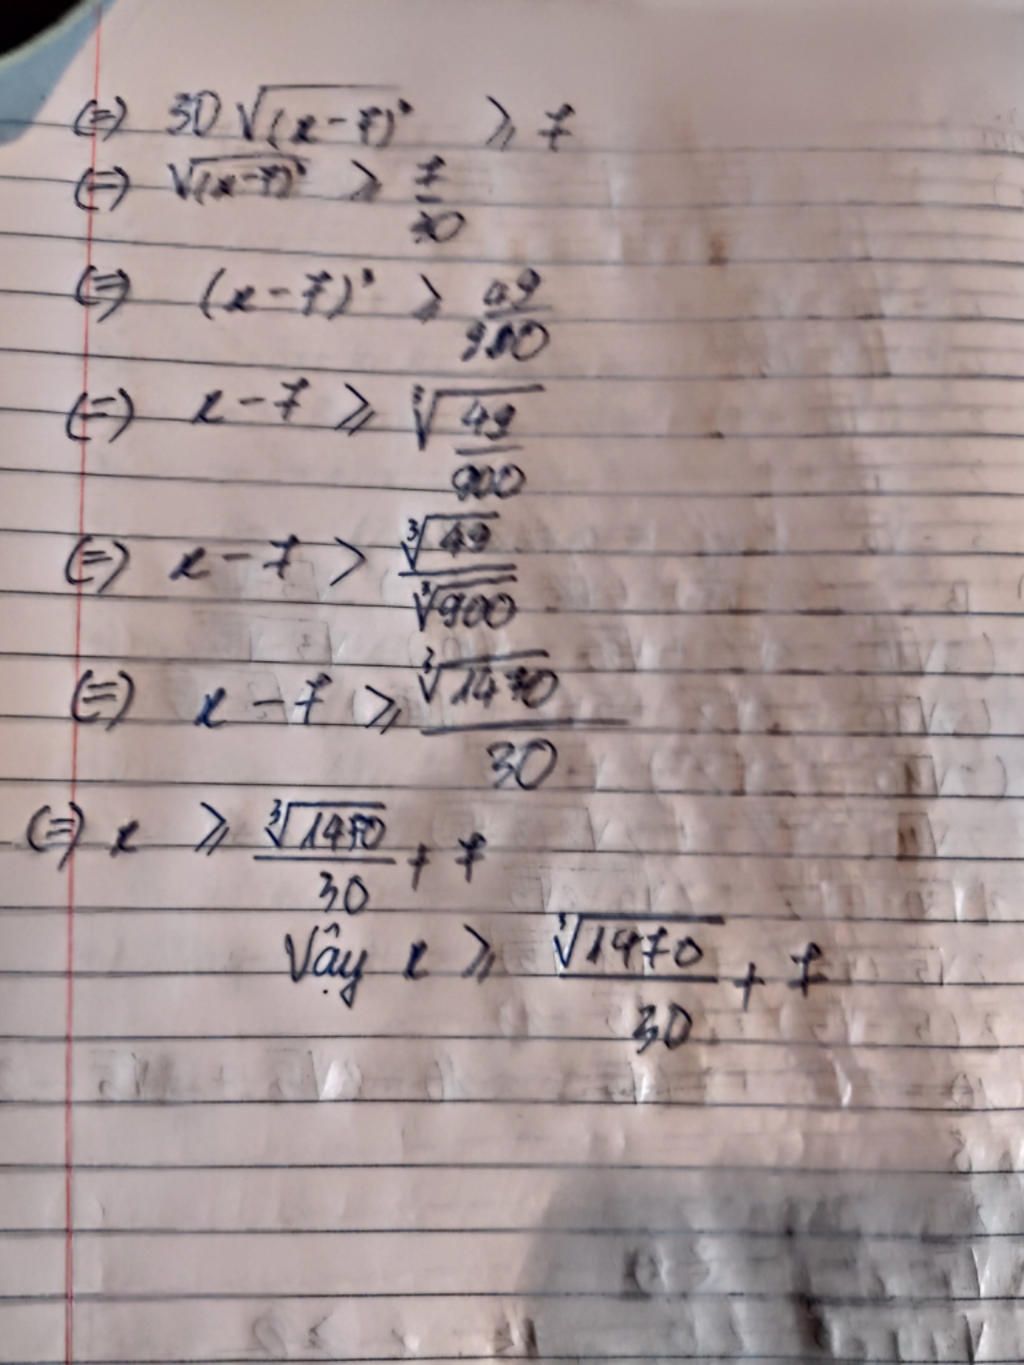 (=) 30√(x-7)³ ≥ 7
(=) √(x-7)³ ≥ 7/30
(=) (x-7)³ ≥ 49/900
(=) x-7 ≥ ³√(49/900)
(=) x-7 > ³√49/³√900
(=) x-7 ≥ ³√1470/30
(=) x ≥ ³√1470/30 + 7
Vậy x ≥ ³√1470/30 + 7